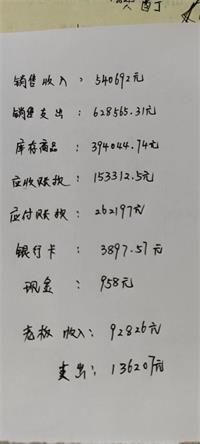 销售收入：540692元
销售支出：628565.31元
库存商品：394044.74元
应收账款：153312.5元
应付账款：262197元
银行卡：3897.57元
现金：958元
老板收入：92826元
支出：136207元